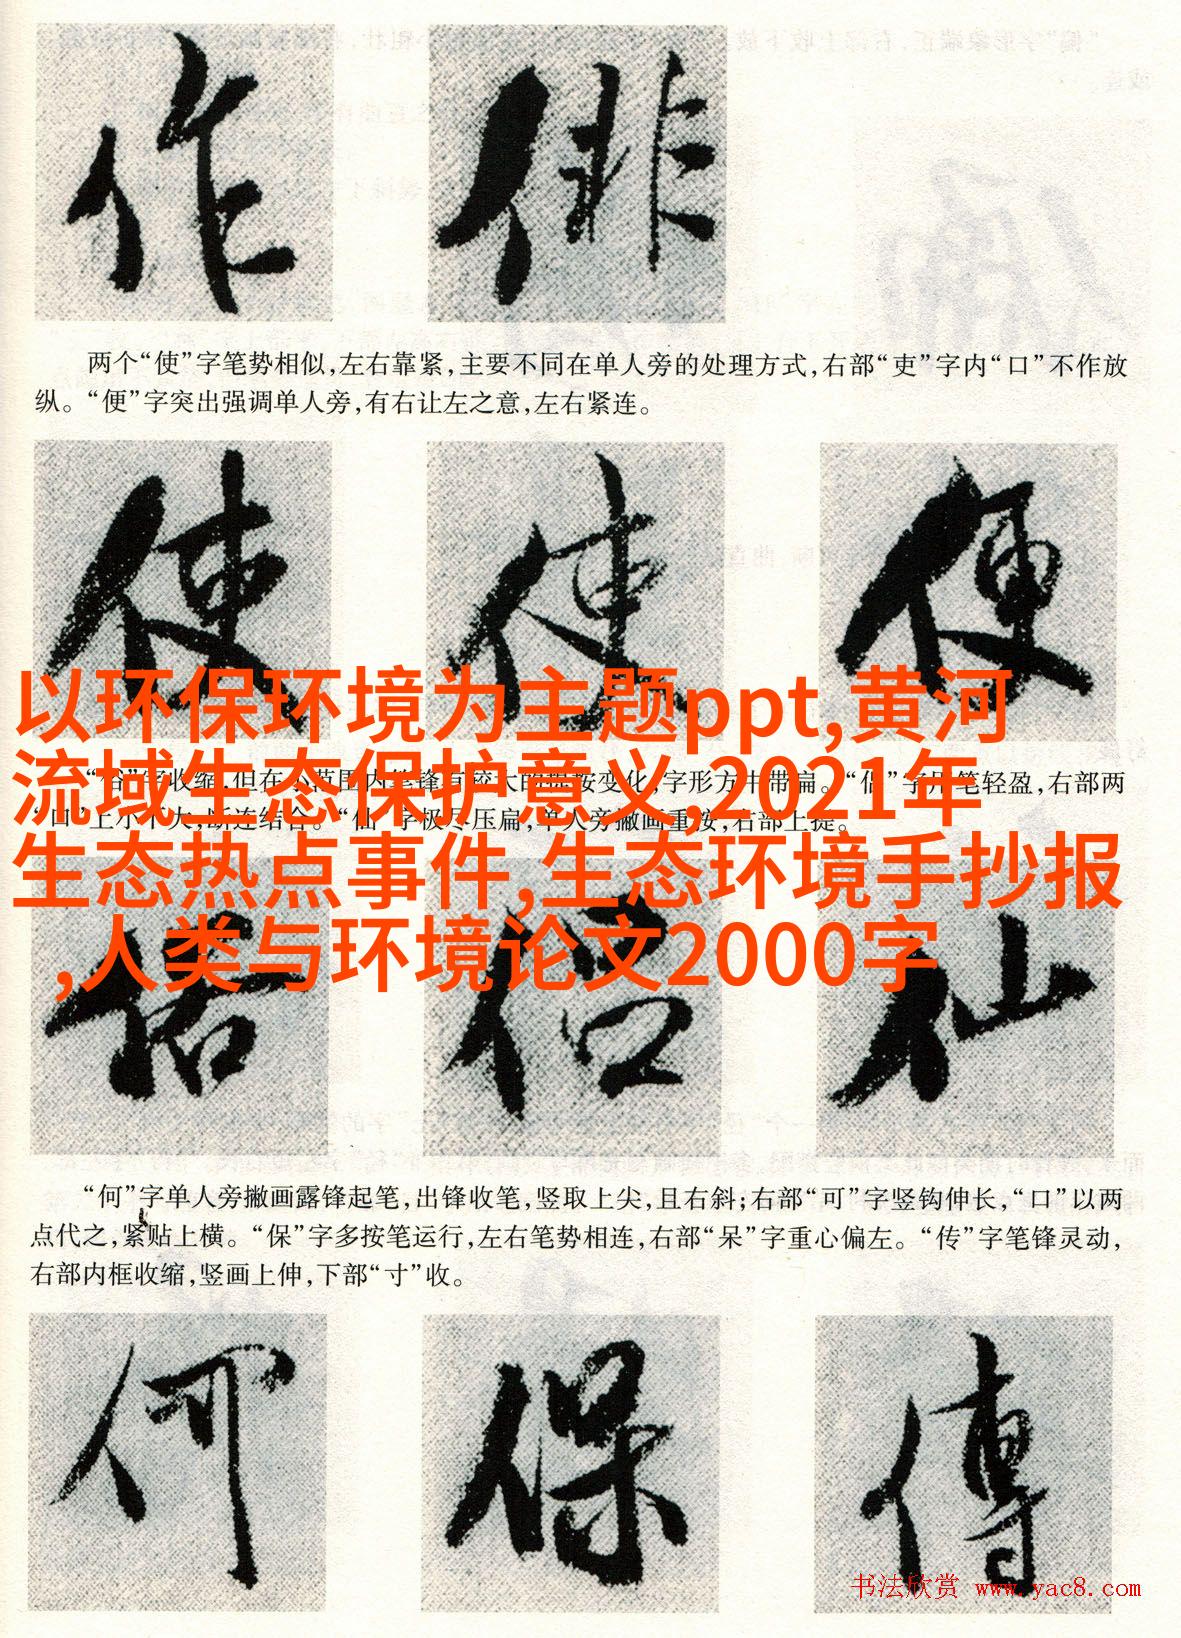 作 俳
两个“使”字笔势相似,左右靠紧,主要不同在单人旁的处理方式,右部“吏”字内“口”不作放
纵。“便”字突出强调单人旁,有右让左之意,左右紧连。
使 使 便
以环保环境为主题ppt,黄河
流域生态保护意义,2021年
生态热点事件,生态环境手抄报
,人类与环境论文2000字
“俗”字收缩,但在小范围内笔锋有较大的提按变化,字形方中带扁。“侣”字用笔轻盈,右部两
“口”上小下大,断连结合。“仙”字极尽压扁,单人旁撇画重按,右部上提。
俗 侣 仙
“何”字单人旁撇画露锋起笔,出锋收笔,竖取上尖,且右斜;右部“可”字竖钩伸长,“口”以两
点代之,紧贴上横。“保”字多按笔运行,左右笔势相连,右部“呆”字重心偏左。“传”字笔锋灵动,
右部内框收缩,竖画上伸,下部“寸”收。
何 保 傳
书法欣赏 www.yac8.com